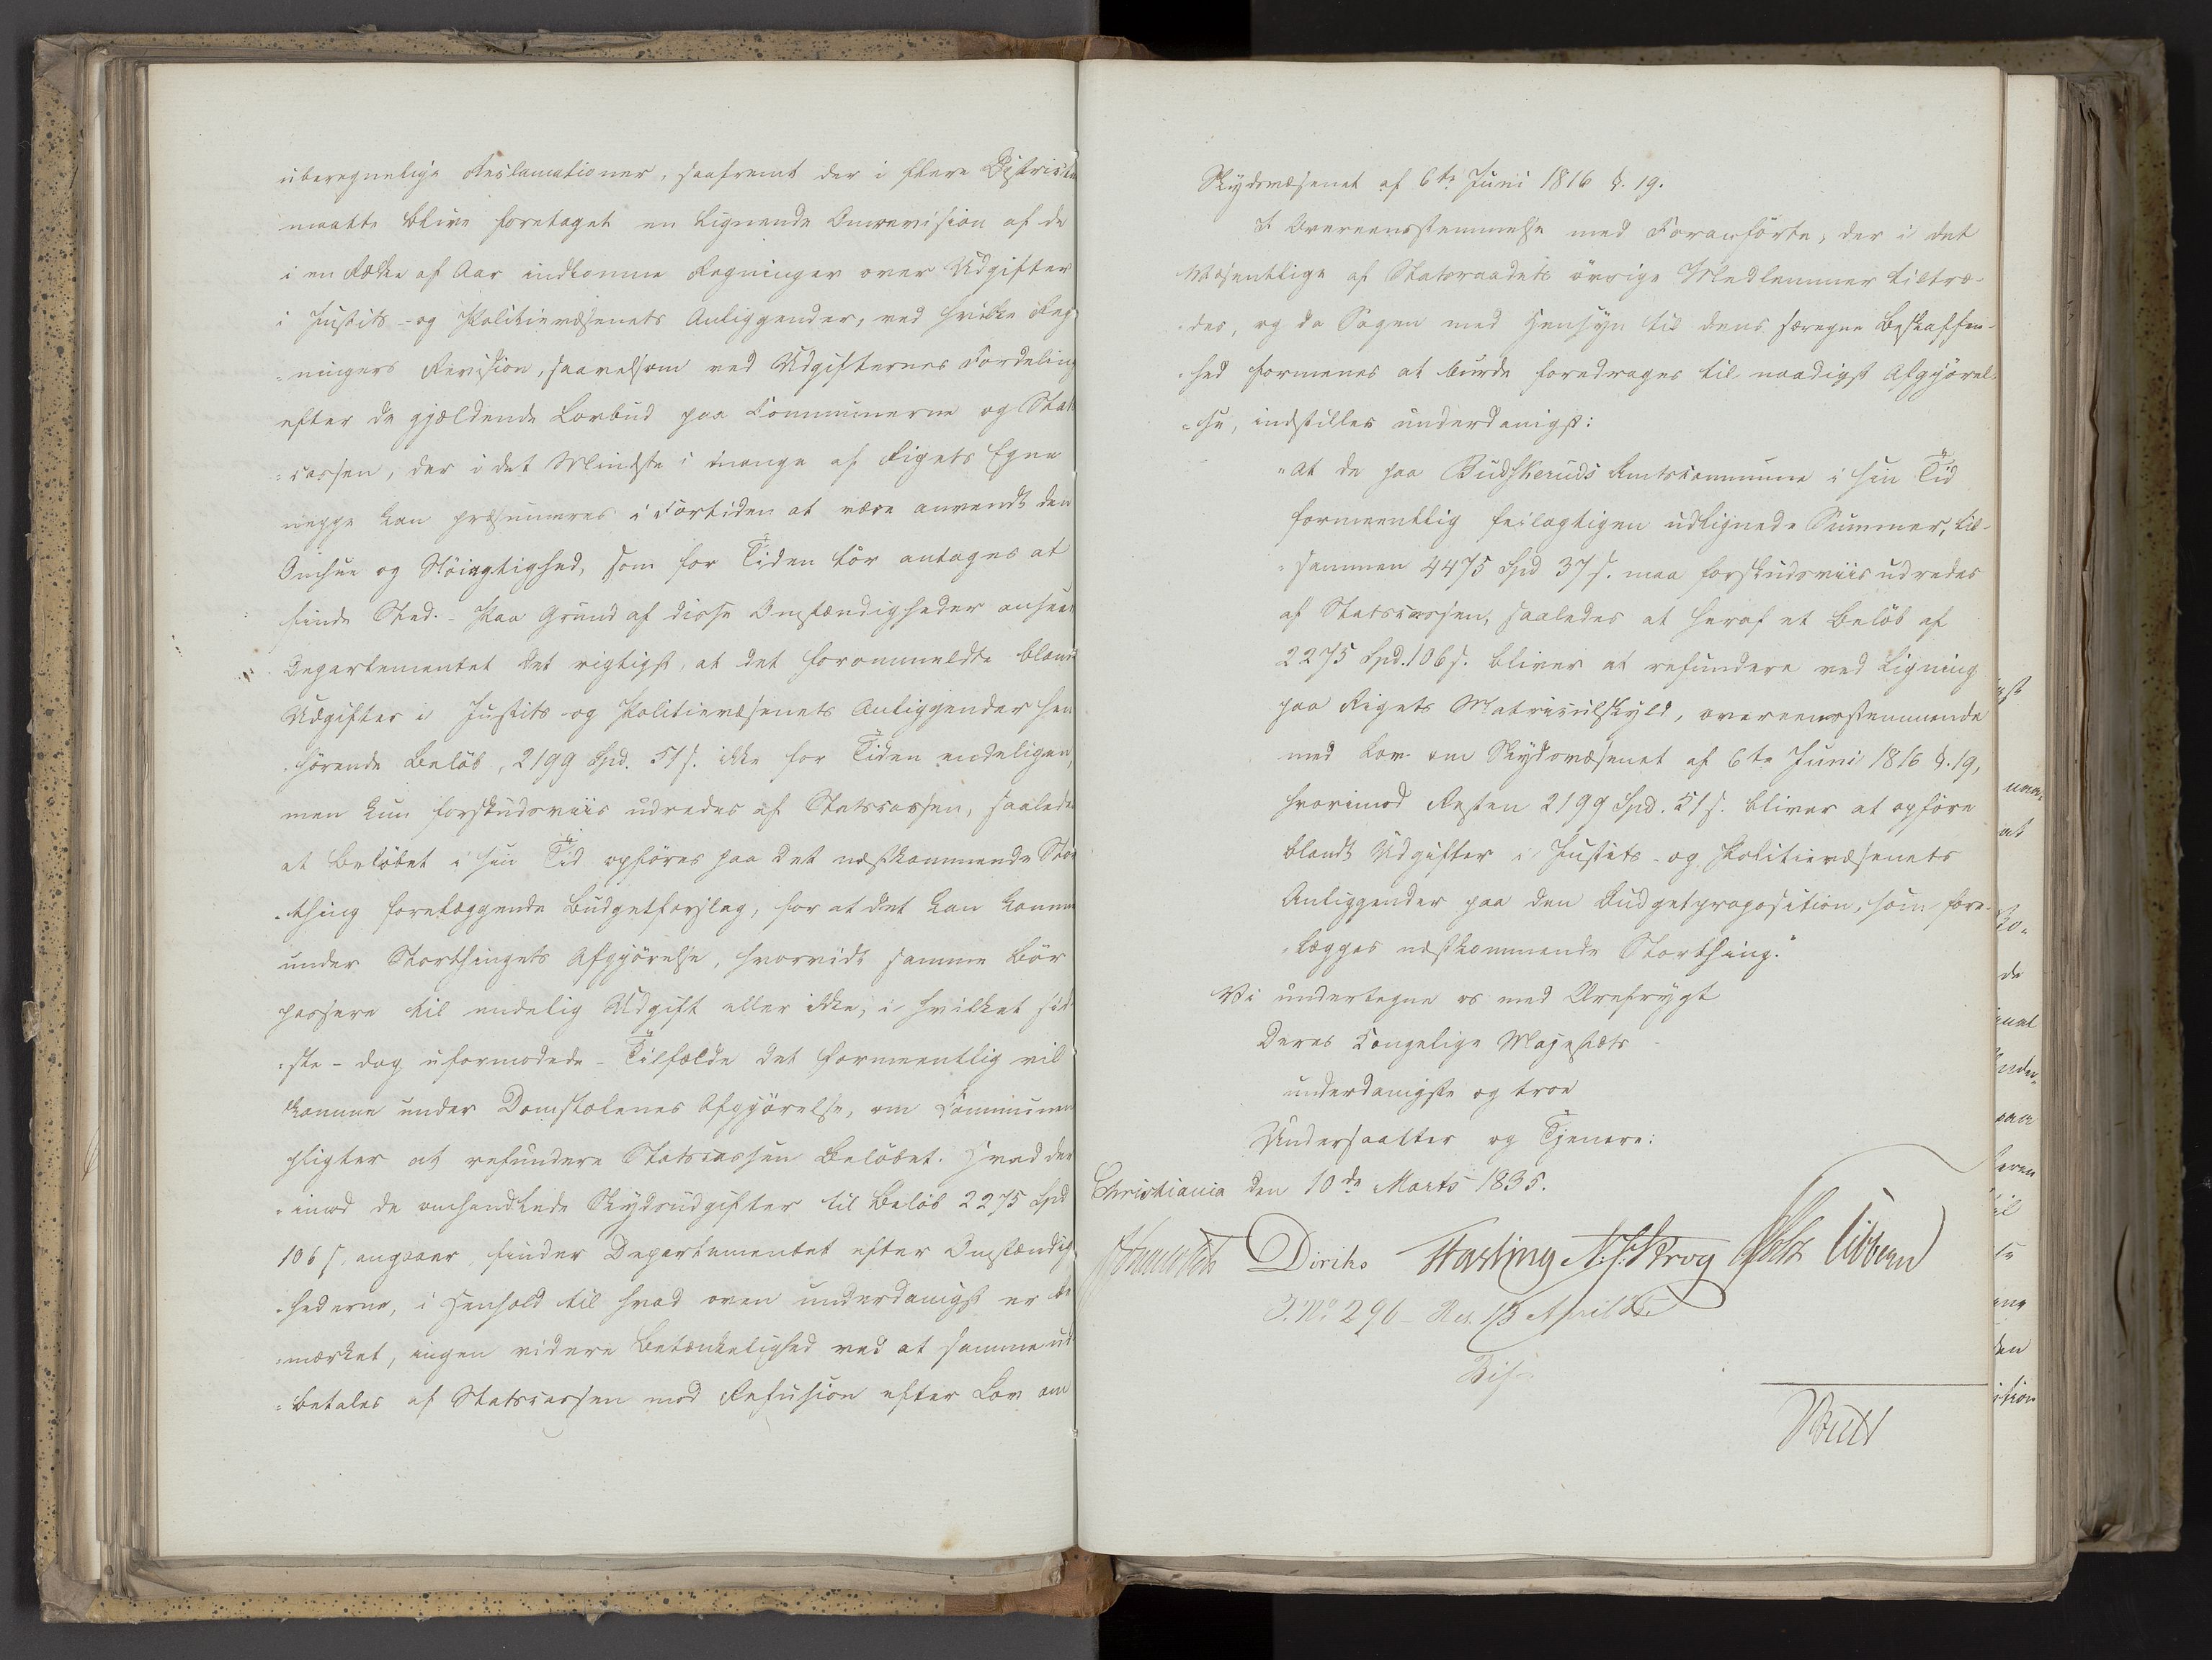 uberegnelige Reclamationer, saafremt der i flere Districter
maatte blive foretaget en lignende Omrevision af de
i en Række af Aar indkomne Regninger over Udgifter
i Justits- og Politievæsenets Anliggender, ved hvilke Reg-
-ningers Revision, saavelsom ved Udgifternes Fordeling
efter de gjældende Lovbud paa Communerne og Stats-
-cassen, der i det Mindste i mange af Rigets Egne
neppe kan præsumeres i Fortiden at være anvendt den
Omhue og Nöiagtighed, som for Tiden tör antages at
finde Sted. - Paa Grund af disse Omstændigheder anseer
Departementet det rigtigst, at det forommeldte blandt
Udgifter i Justits- og Politievæsenets Anliggender hen-
-hörende Belöb, 2199 Spd. 51 s. ikke for Tiden endeligen,
men kun forskudsviis udredes af Statscassen, saaledes
at Belöbet i sin Tid opföres paa det næstkommende Stor-
-thing forelæggende Budgetforslag, for at det kan komme
under Storthingets Afgjörelse, hvorvidt samme bör
passere til endelig Udgift eller ikke, i hvilket sid-
-ste - dog uformodede - Tilfælde det formeentlig vil
komme under Domstolenes Afgjörelse, om Communen
pligter at refundere Statscassen Belöbet. Hvad der-
-imod de omhandlede Skydsudgifter til Belöb 2275 Spd
106 s. angaaer, finder Departementet efter Omstændig-
-hederne, i Henhold til hvad oven underdanigst er be-
-mærket, ingen videre Betænkelighed ved at samme ud-
-betales af Statscassen mod Refusion efter Lov om
Skydsvæsenet af 6te Juni 1816 §. 19.
I Overeensstemmelse med Foranförte, der i det
Væsentlige af Statsraadets övrige Medlemmer tiltræ-
-des, og da Sagen med Hensyn til dens særegne Beskaffen-
-hed formenes at burde foredrages til naadigst Afgjörel-
-se, indstilles underdanigst:
"At de paa Budskeruds Amtscommune i sin Tid
formeentlig feilagtigen udlignede Summer, til-
-sammen 4475 Spd 37 s. maa forskudsviis udredes
af Statscassen, saaledes at heraf et Belöb af
2275 Spd. 106 s. bliver at refundere ved Ligning
paa Rigets Matriculskyld, overeensstemmende
med Lov om Skydsvæsenet af 6te Juni 1816 §. 19,
hvorimod Resten 2199 Spd. 51 s. bliver at opföre
blandt Udgifter i Justits- og Politievæsenets
Anliggender paa den Budgetproposition, som fore-
-lægges næstkommende Storthing."
Vi undertegne os med Ærefrygt
Deres Kongelige Majestæts
underdanigste og troe
Undersaatter og Tjenere:
Christiania den 10de Marts 1835.
Diriks Fasting Krog Vibbern
J. No 296 - Res. 13 April 35.